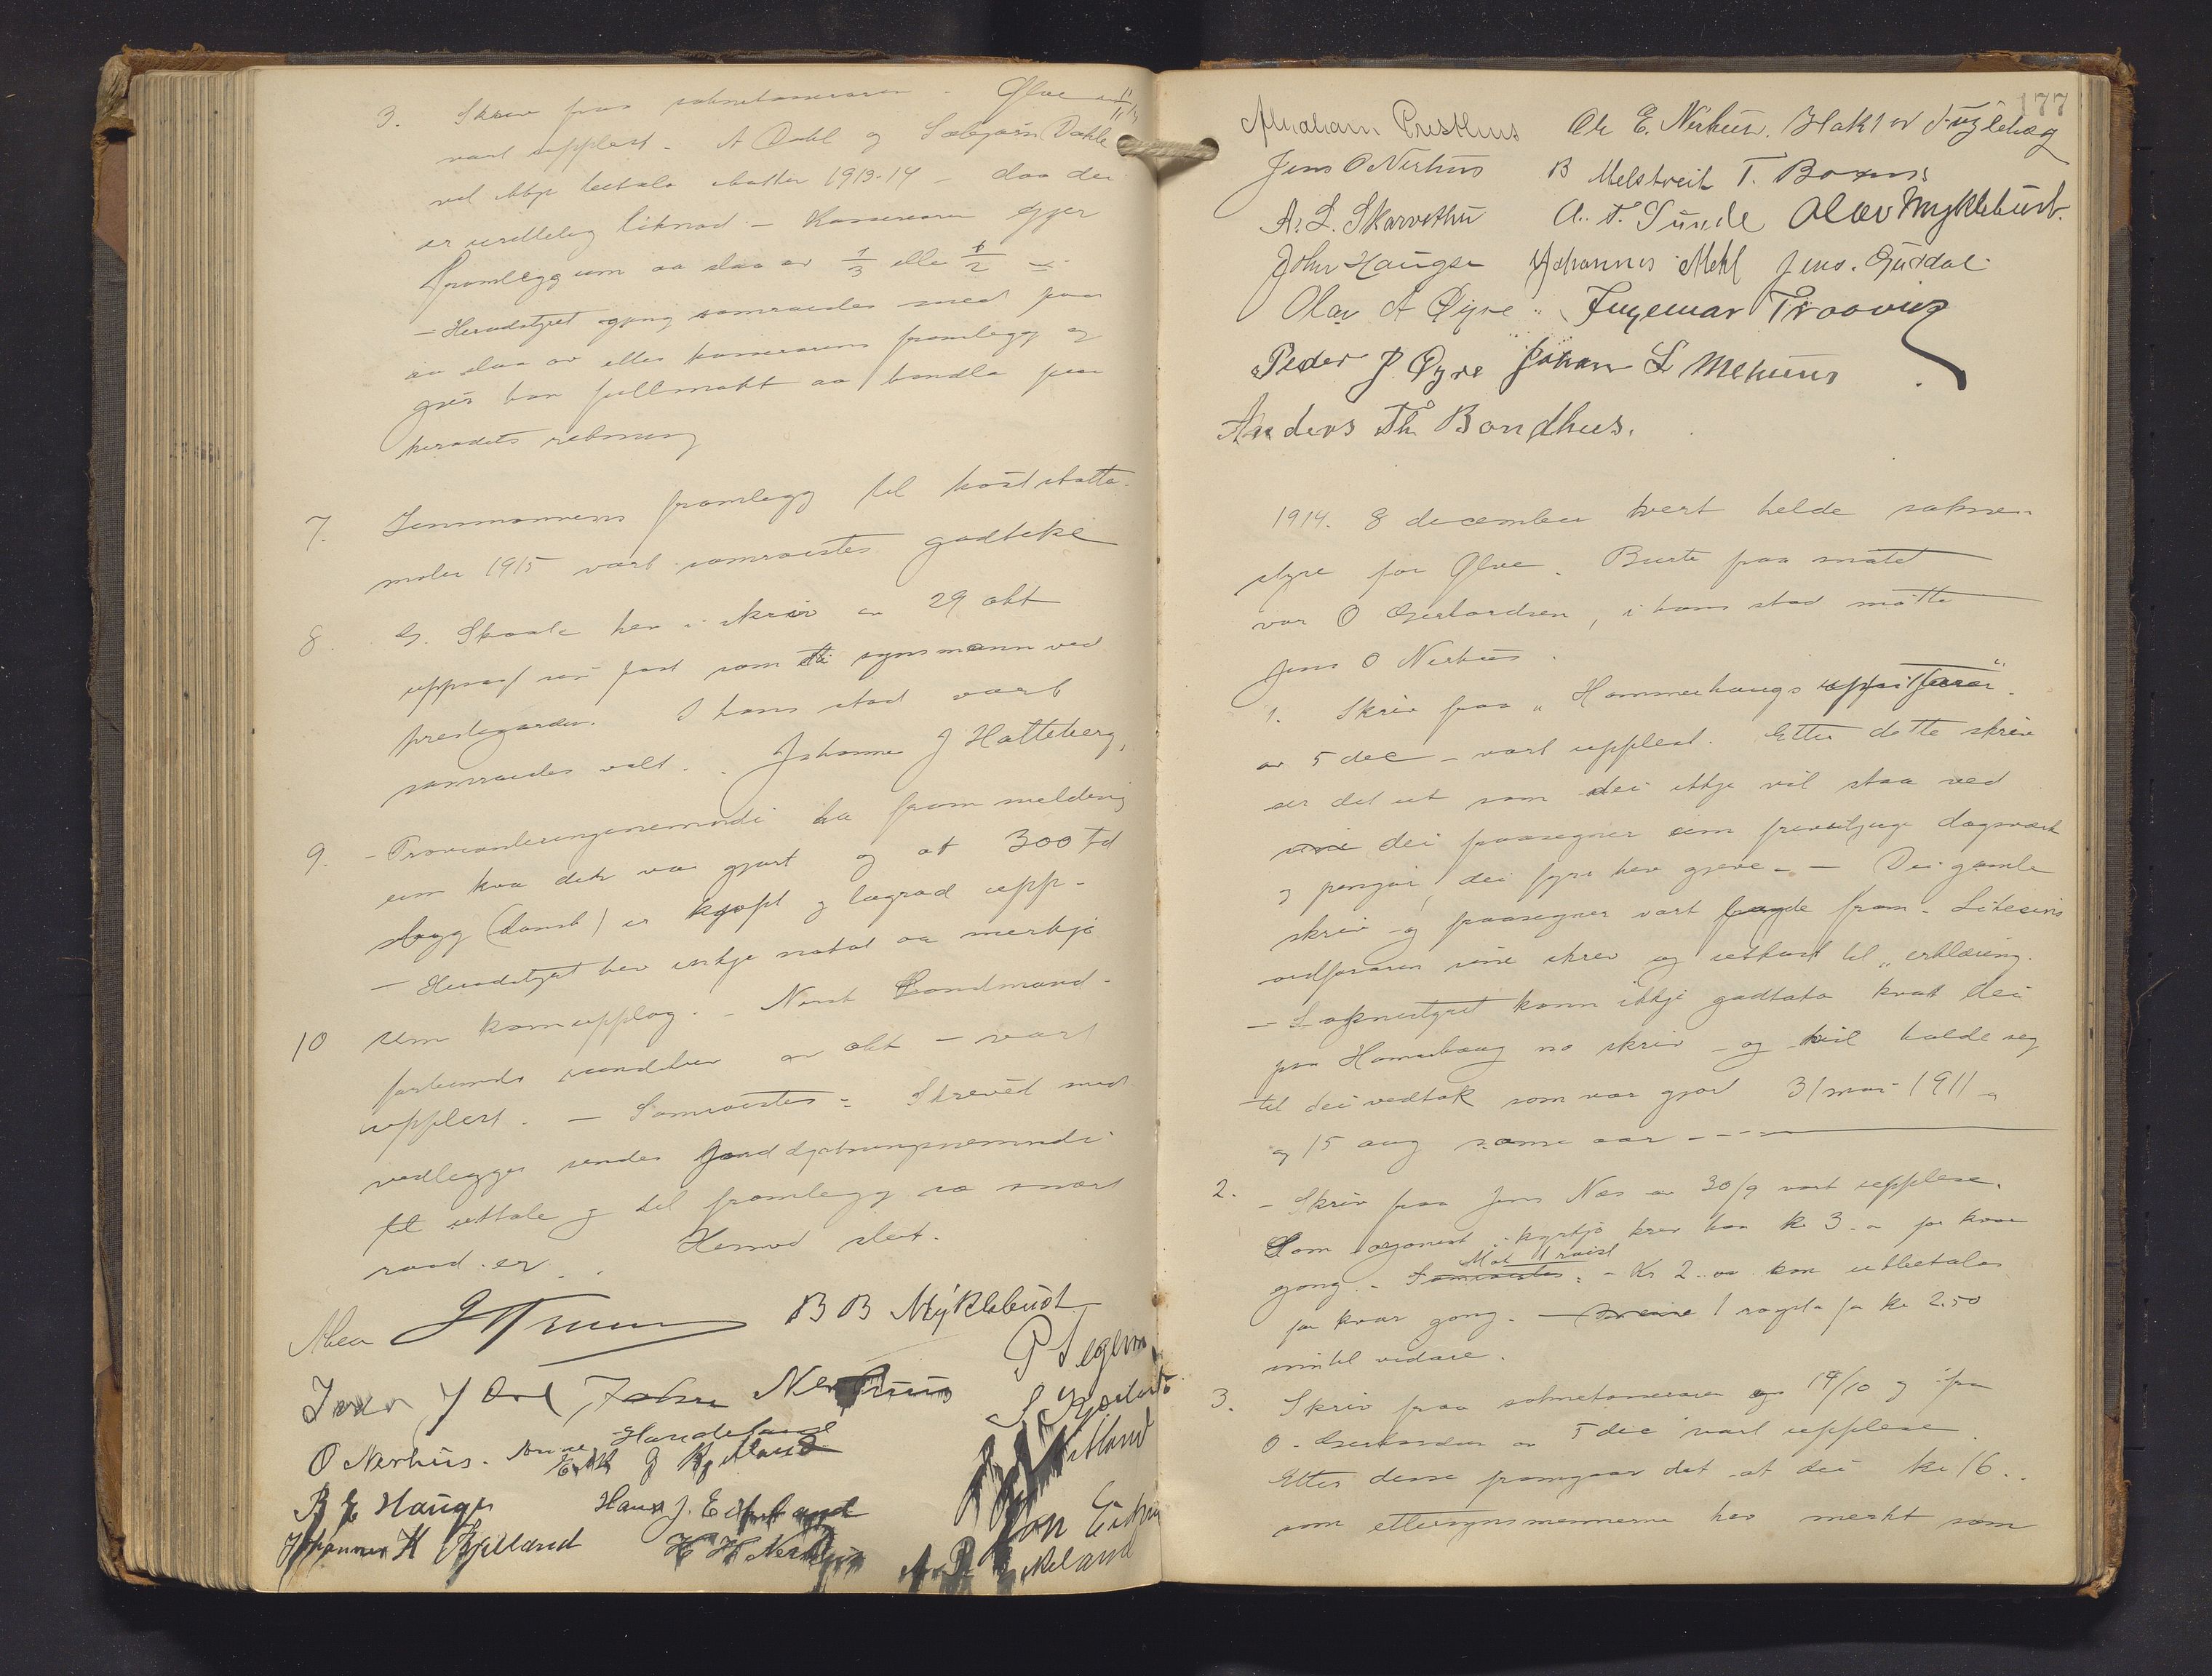 3. Skriv fraa soknekasseraren - Ølve av 11/11 14
vart upplest. A Dahl og Sæbjørn Dahle
vil ikkje betala skatten 1913-14 - daa dei
er uretteleg liknad - Kasseraren gjer
framlegg um aa slaa av 1/3 elle 1/2
- Heradstyret gjeng samrøystes med paa
aa slaa av etter kasserarens framlegg og
gjev han fullmakt aa handla paa
heradets rekning
7. Lensmannens framlegg til
1915 vart samrøistes godtekne
8. G. Skaale hev i skriv av 29 okt
uppsagt sin post som synsmann ved
prestegarden. I hans stad vart
samrøistes valt. Johannes J Hatteberg,
9. - Provianteringsnemndi ha fram melding
um kva der var gjort og at 300 td
bygg (dansk) er kjøpt og lagrad upp-
- Heradstyret hev inkje aa merkje
10 um kornupplag. - Norsk Landmands-
forbunds av okt - vart
upplest. - Samrøistes: Skrevet med
vedlegger sendes Jorddyrkningsnemndi
til uttale og til framlegg so snart
raad er. Hermed slut.
B B Myklebust
P Segline
Nerhus
O Nerhus. Handeland
B E Hauge Hans J. Eikeland
Johannes H Kjelland H H Nerhus
177
Abraham Presthus Ole E. Nerhus. Håktor Fuglehaug
Jens O Nerhus B Melstveit T. Boxus
A. L. Skarvethu A. T. Sunde Olav Myklebust.
John Haugse Johannes Mehl Jens. Gusdal
Olav A Øyre Ingemar Traavig
Peder J. Øyre Johan L Mehuus
Anders Th Bondhus.
1914. 8 december vert helde sokne-
styre for Ølve. Burte fraa møtet
var O Gjerhardsen, i hans stad møtte
Jens O Nerhus.
1. Skriv fraa "Hammerhaugs uppsitjarar".
av 5 dec - vart upplest. Etter dette skriv
ser det ut som dei ikkje vil staa ved
sine dei paasegner um friviljuge dagsverk
og pengar, dei fyre hev gjeve. - Dei gamle
skriv og paasegner vart lagde fram. Likeeins
ordførarens sine skriv og utkast til "erklæring.
- Soknestyret kann ikkje godtaka kvat dei
paa Hamrehaug no skriv - og vil halde seg
til dei vedtak som var gjort 31 mai 1911 -
og 15 aug same aar - - -
2. - Skriv fraa Jens Næs av 30/9 vart upplese.
Som organist i kyrkjo krev han kr 3.- for kvar
gong. - Samrøistes: Mot 1 røist - Kr 2.- kan utbetalas
for kvar gong. - 1 røysta for kr 2.50
inntil vidare.
3. Skriv fraa soknekasseraren av 19/10 og ifra
O. Gjerhardsen av 5 dec vart upplese.
Etter desse framgaar det at dei kr 16..
som ettersynsmennerne hev merkt som